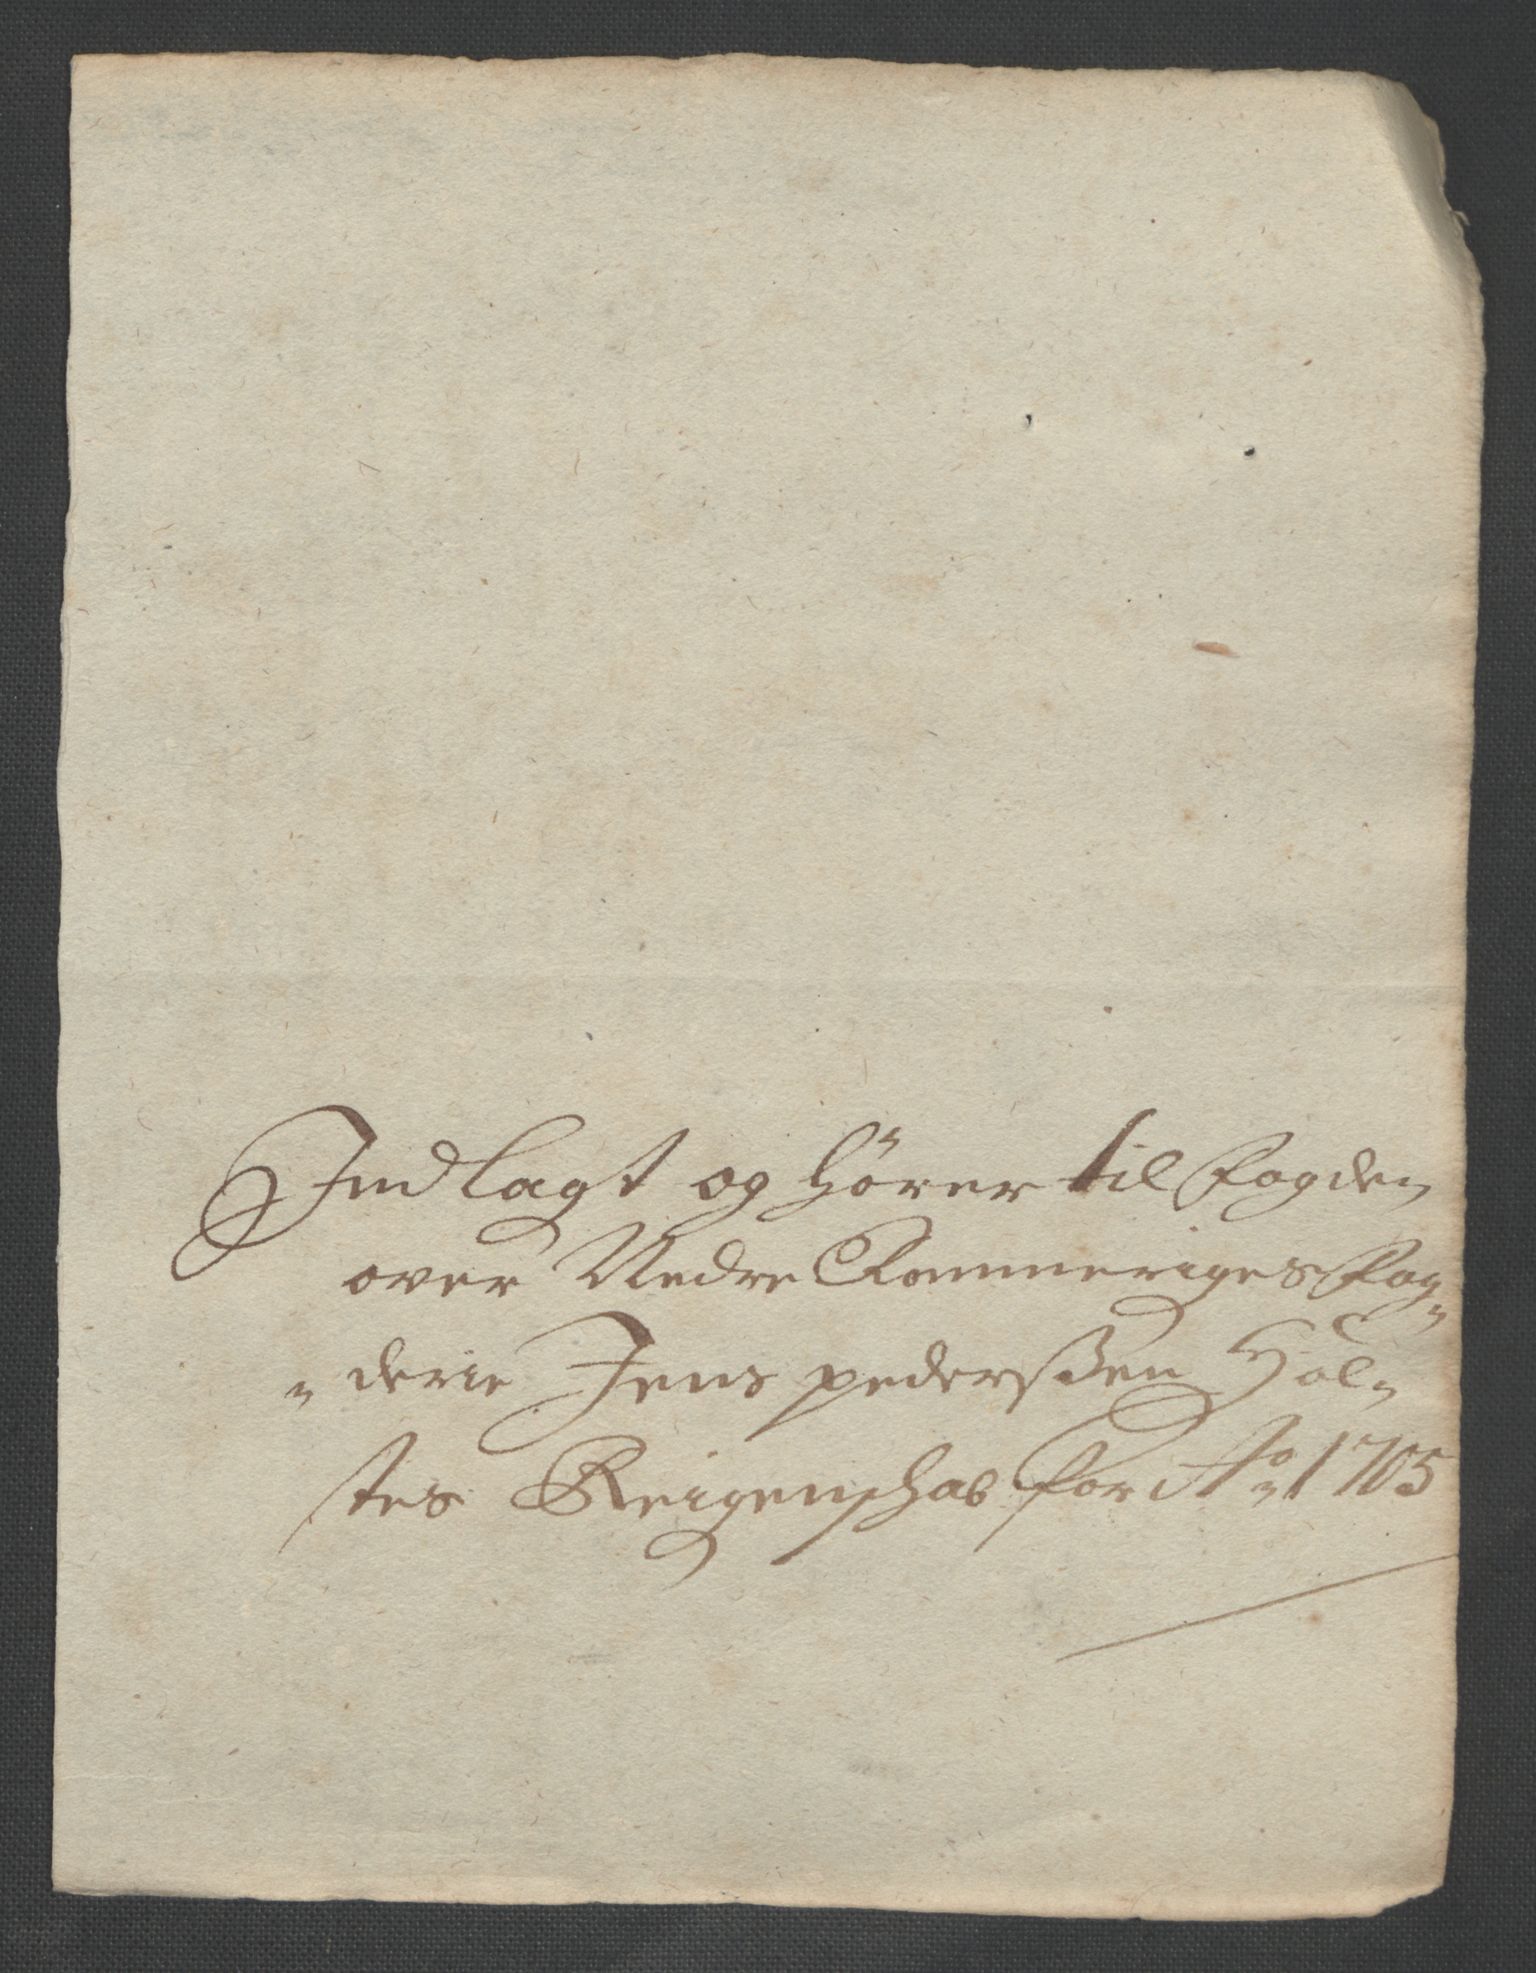 Indlagt og hører til fogden
over Nedre Rommeriges fog„
„derie Jens pederßen Hol„
stes Reigenschab for Ao 1705